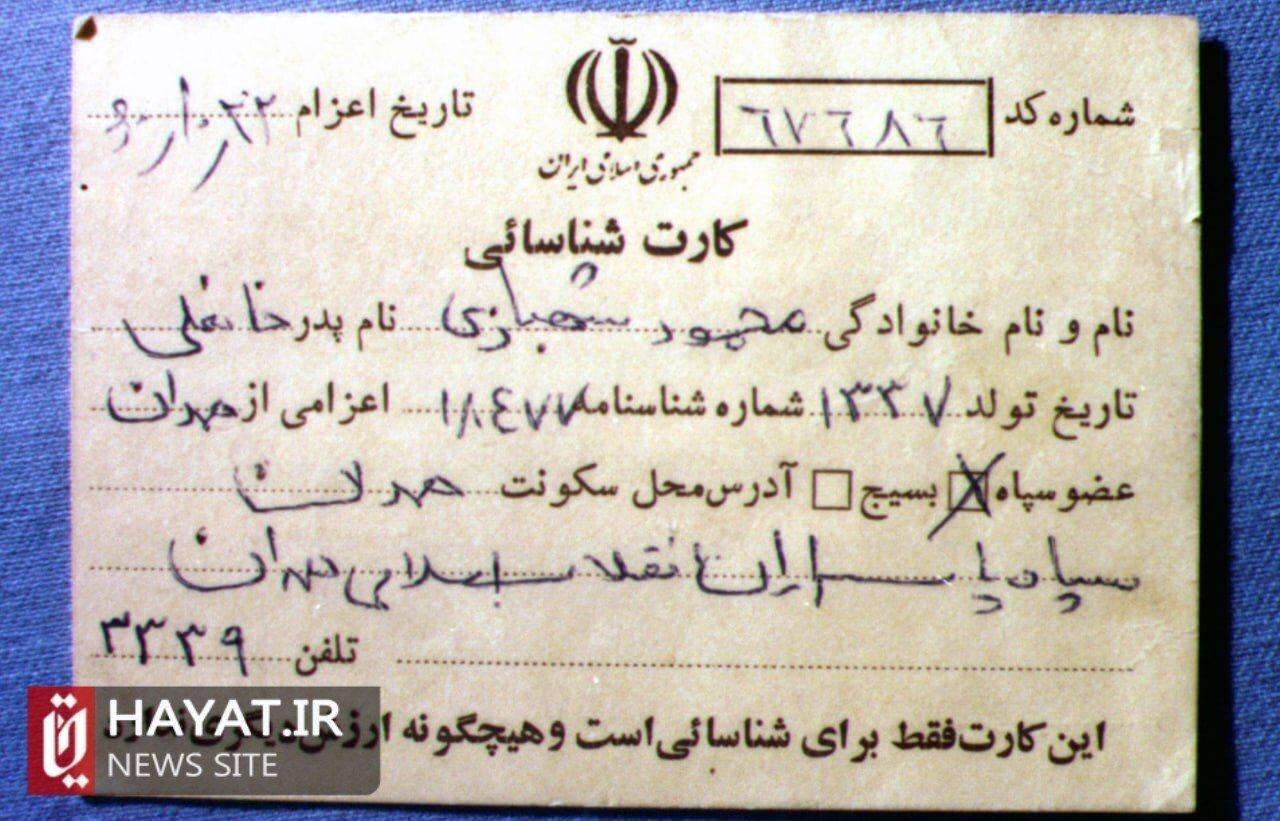 شماره کد ٦٧٦٨٦
جمهوری اسلامی ایران
تاریخ اعزام
کارت شناسائی
نام و نام خانوادگی محمود شهبازی نام پدر خانعلی
تاریخ تولد ۱۳۳۷ شماره شناسنامه ۱۸٤۷۷ اعزامی از همدان
عضو سپاه بسیج آدرس محل سکونت همدان
سپاه پاسداران انقلاب اسلامی همدان
تلفن ۳۳۳۹
این کارت فقط برای شناسائی است و هیچگونه ارزش دیگری
HAYAT.IR
NEWS SITE